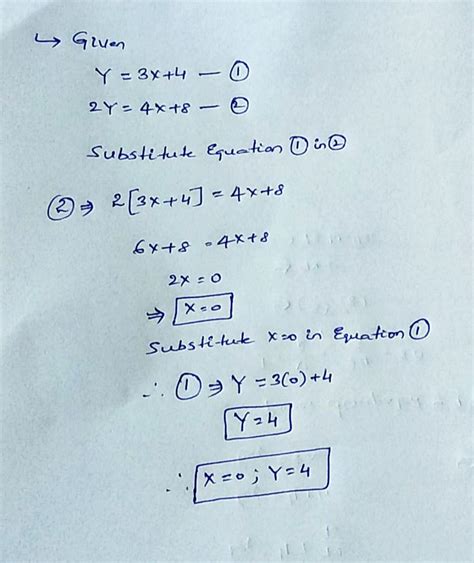 ↳ Given
Y = 3x+4 — ①
2Y = 4x+8 — ②
Substitute Equation ① in ②
② ⇒ 2[3x+4] = 4x+8
6x+8 = 4x+8
2x = 0
⇒ x=0
Substitute x=0 in Equation ①
∴ ① ⇒ Y = 3(0)+4
Y=4
∴ x=0 ; Y=4